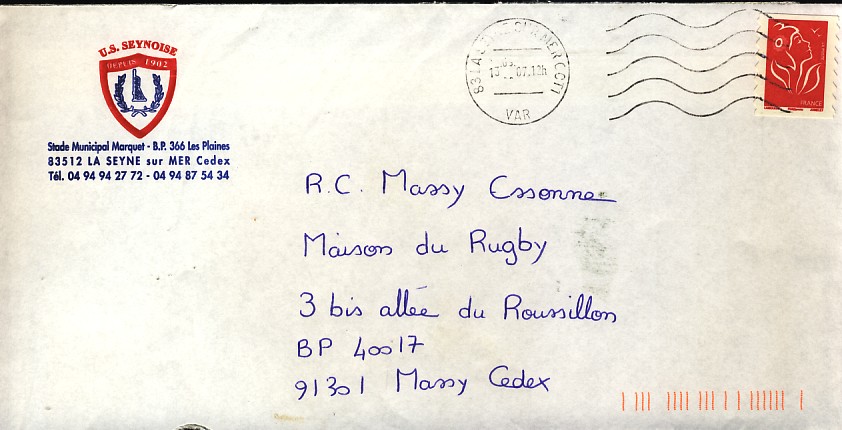 U.S. SEYNOISE
DEPUIS 1902
Stade Municipal Marquet - B.P. 366 Les Plaines
83512 LA SEYNE sur MER Cedex
Tél. 04 94 94 27 72 - 04 94 87 54 34
VAR
FRANCE
R.C. Massy Essonne
Maison du Rugby
3 bis allée du Roussillon
BP 40017
91301 Massy Cedex